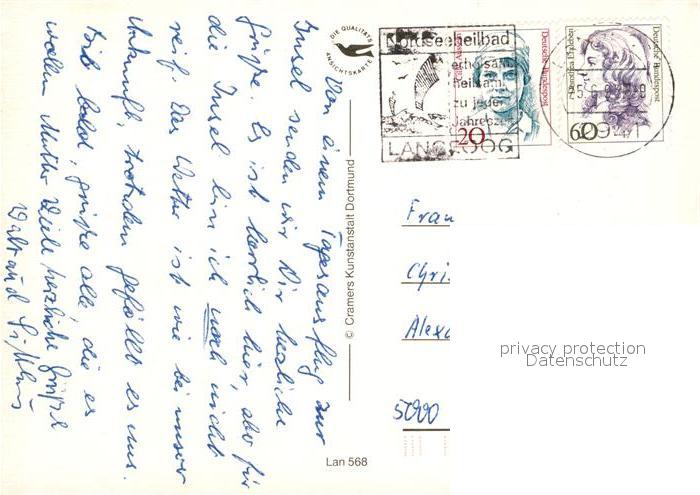 Von einem Tagesausflug zur
Insel senden wir Dir herzliche
Grüße. Es ist herrlich hier, aber für
die Insel bin ich noch nicht
reif. Das Wetter ist wie bei unser
Ankunft, trotzdem gefällt es uns.
Bis bald, grüße alle, die es
wollen Mutter Viele herzliche Grüße
Waltraud
DIE QUALITÄTS
ANSICHTSKARTE
© Cramers Kunstanstalt Dortmund
Lan 568
Nordseeheilbad
erholsam
heilsam
zu jeder
Jahreszeit
LANGEOOG
Deutsche Bundespost
20
Deutsche Bundespost
60
Frau
Chri
Alexa
privacy protection
Datenschutz